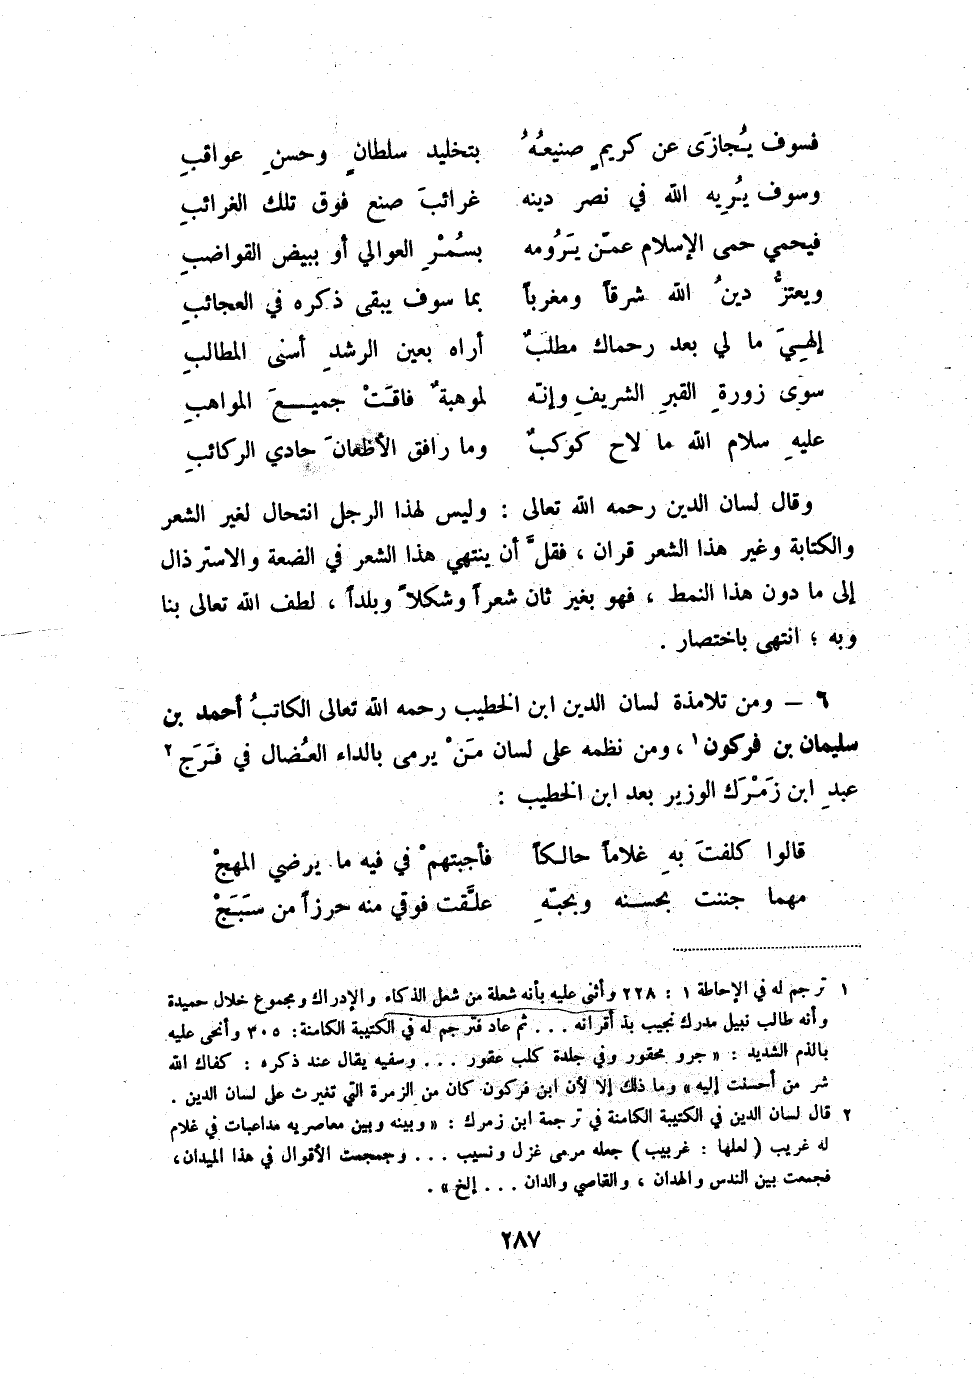 فسوف يُجازَى عن كريمٍ صنيعهُ بتخليد سلطانٍ وحسنِ عواقبِ
وسوف يُريه الله في نصر دينه غرائبَ صنع فوق تلك الغرائبِ
فيحمي حمى الإسلام عمّن يَرُومه بسُمْرِ العوالي أو ببيض القواضبِ
ويعتزُّ دينُ الله شرقاً ومغرباً بما سوف يبقى ذكره في العجائبِ
إلهيَ ما لي بعد رحماك مطلبٌ أراه بعين الرشدِ أسنى المطالبِ
سوى زورةِ القبرِ الشريفِ وإنّه لموهبةٌ فاقَتْ جميعَ المواهبِ
عليهِ سلام الله ما لاح كوكبٌ وما رافق الأظعانَ حادي الركائبِ
وقال لسان الدين رحمه الله تعالى : وليس لهذا الرجل انتحال لغير الشعر
والكتابة وغير هذا الشعر قران ، فقلَّ أن ينتهي هذا الشعر في الضعة والاسترذال
إلى ما دون هذا النمط ، فهو بغير ثان شعراً وشكلاً وبلداً ، لطف الله تعالى بنا
وبه ؛ انتهى باختصار .
٦ – ومن تلامذة لسان الدين ابن الخطيب رحمه الله تعالى الكاتبُ أحمد بن
سليمان بن فركون١ ، ومن نظمه على لسان مَنْ يرمى بالداء العُضال في فَرَج٢
عبدِ ابن زَمْرَك الوزير بعد ابن الخطيب :
قالوا كلفتَ بهِ غلاماً حالكاً فأجبتهمْ في فيه ما يرضي المهجْ
مهما جننت بحسنه وبحبّهِ علّقت فوقي منه حرزاً من سَبَجْ
١ ترجم له في الإحاطة ١ : ٢٢٨ وأثنى عليه بأنه شعلة من شعل الذكاء والإدراك ومجموع خلال حميدة
وأنه طالب نبيل مدرك نجيب بذ أقرانه ... ثم عاد فترجم له في الكتيبة الكامنة: ٣٠٥ وأنحى عليه
بالذم الشديد : « جرو محقور وفي جلدة كلب عقور ... وسفيه يقال عند ذكره : كفاك الله
شر من أحسنت إليه » وما ذلك إلا لأن ابن فركون كان من الزمرة التي تغيرت على لسان الدين .
٢ قال لسان الدين في الكتيبة الكامنة في ترجمة ابن زمرك : « وبينه وبين معاصريه مداعبات في غلام
له غريب ( لعلها : غربيب ) جعله مرمى غزل ونسيب ... وجمجمت الأقوال في هذا الميدان،
فجمعت بين الندس والهدان ، والقاصي والدان ... إلخ » .
٢٨٧